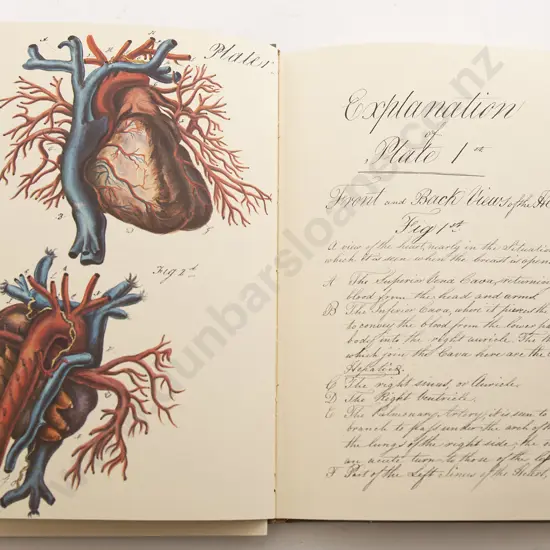 Plate 1
Fig 2d
Explanation
of
Plate 1st
Front and Back Views of the He
Fig 1st
A view of the heart, nearly in the situation
which it is seen when the breast is open
A The Superior Vena Cava, returning
blood from the head and arms
B The Inferior Cava, where it pierces the
to convey the blood from the lower par
body into the right auricle. The
which join the Cava here are the
Hepaticæ
C The right sinus, or Auricle
D The Right Ventricle
E The Pulmonary Artery; it is seen to
branch to pass under the arch of the
the lungs of the right side; the
an acute turn to those of the le
F Part of the Left Sinus of the Heart,